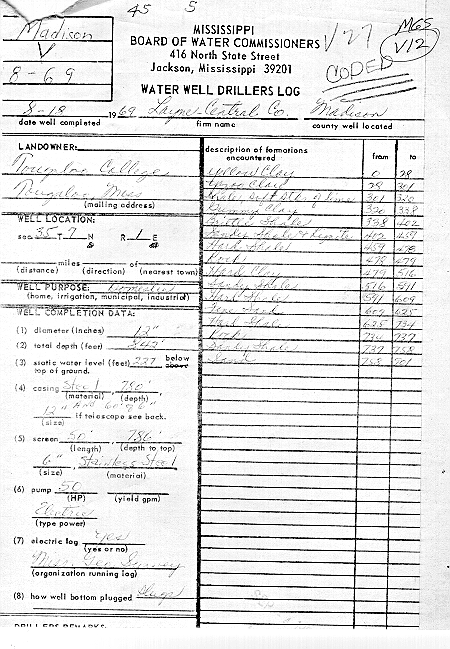 45 5
Madison
V
8-69
MISSISSIPPI
BOARD OF WATER COMMISSIONERS
416 North State Street
Jackson, Mississippi 39201
WATER WELL DRILLERS LOG
V27
MGS
V12
CODED
8-18 1969 Layne Central Co. Madison
date well completed firm name county well located
LANDOWNER:
Tougaloo College
Tougaloo, Miss
(mailing address)
WELL LOCATION:
sec 35 T 7 N R 1 E
miles of
(distance) (direction) (nearest town)
WELL PURPOSE: Domestic
(home, irrigation, municipal, industrial)
WELL COMPLETION DATA:
(1) diameter (inches) 12"
(2) total depth (feet) 842'
(3) static water level (feet) 227 below
above
top of ground.
(4) casing Steel, 780'
(material) (depth)
12" AND 60' of 6" if telescope see back.
(size)
(5) screen 50', 786
(length) (depth to top)
6", Stainless Steel
(size) (material)
(6) pump 50
(HP) (yield gpm)
Electric
(type power)
(7) electric log yes
(yes or no)
Miss Geo Survey
(organization running log)
(8) how well bottom plugged Plugs
DRILLERS REMARKS:
description of formations
encountered from to
Yellow Clay 0 28
Clay 28 301
301 320
Gummy Clay 320 338
Shale 338 402
402 459
Hard Shale 459 478
Rock 478 479
Hard Clay 479 516
Sandy Shale 516 591
Hard Shale 591 609
Fine Sand 609 625
Hard Shale 625 734
Rock 734 737
Sandy Shale 737 758
Sand 758 801